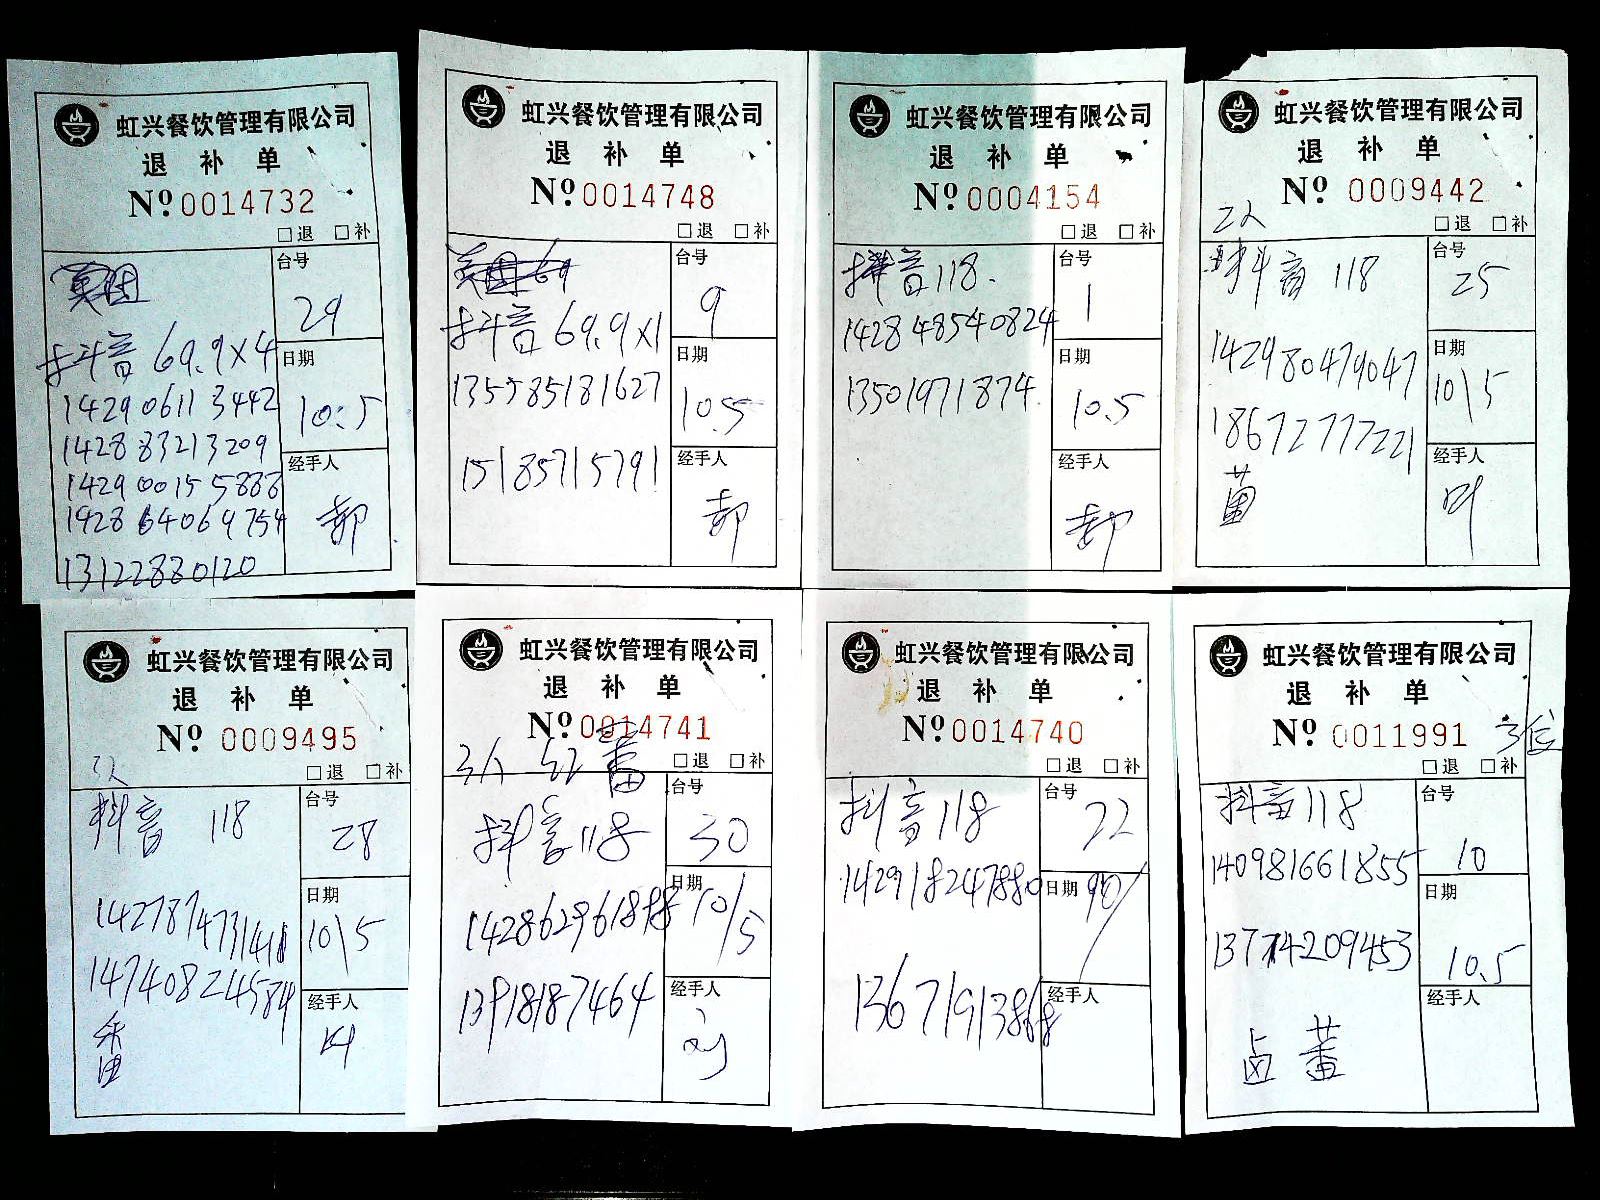 虹兴餐饮管理有限公司
退补单
Nº 0014732
□退 □补
美团
台号
29
抖音 69.9×4
日期
10.5
142906113442
142883213209
142900155888
142864069754
13122880120
经手人
郝
虹兴餐饮管理有限公司
退补单
Nº 0014748
□退 □补
美团 69
台号
9
抖音 69.9×1
日期
10.5
135585181627
15185715791
经手人
郝
虹兴餐饮管理有限公司
退补单
Nº 0004154
□退 □补
抖音 118.
台号
1
142848540824
日期
10.5
13501971874
经手人
郝
虹兴餐饮管理有限公司
退补单
Nº 0009442
2人
□退 □补
抖音 118
台号
25
142980479047
日期
10\5
18672777221
经手人
叶
虹兴餐饮管理有限公司
退补单
Nº 0009495
3人
□退 □补
抖音 118
台号
28
日期
10\5
14740824584
经手人
叶
虹兴餐饮管理有限公司
退补单
Nº 0014741
3人 红
□退 □补
抖音118
台号
30
日期
10/5
13918187464
经手人
刘
虹兴餐饮管理有限公司
退补单
Nº 0014740
□退 □补
抖音118
台号
22
142918247880
日期
经手人
虹兴餐饮管理有限公司
退补单
Nº 0011991
3位
□退 □补
抖音118
台号
10
140981661855
日期
10.5
13774209453
经手人
卤